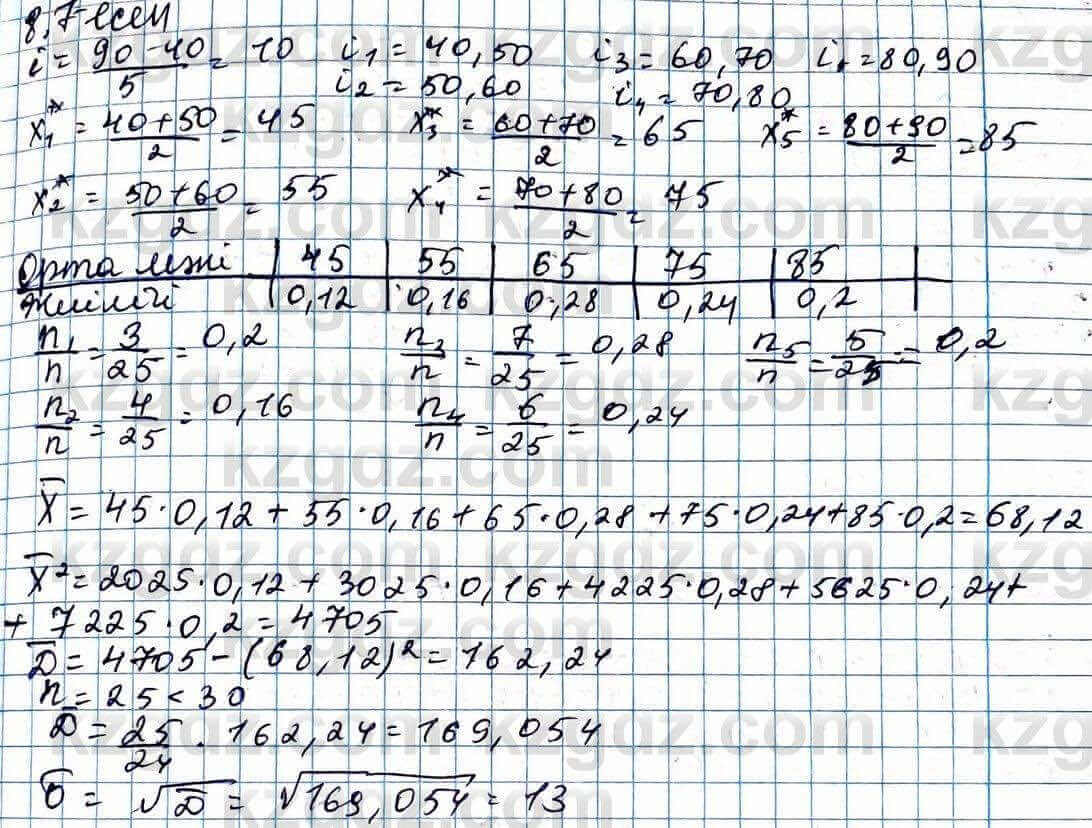 8,7-есеп
i = (90-40)/5 = 10 i₁ = 40,50 i₃ = 60,70 i. = 80,90
i₂ = 50,60 i₄ = 70,80
x₁* = (40+50)/2 = 45 x₃* = (60+70)/2 = 65 x₅* = (80+90)/2 = 85
x₂* = (50+60)/2 = 55 x₄* = (70+80)/2 = 75
Орта мәні | 45 | 55 | 65 | 75 | 85 |
Жиілігі | 0,12 | 0,16 | 0,28 | 0,24 | 0,2 |
n₁/n = 3/25 = 0,2 n₃/n = 7/25 = 0,28 n₅/n = 5/25 = 0,2
n₂/n = 4/25 = 0,16 n₄/n = 6/25 = 0,24
X̄ = 45·0,12 + 55·0,16 + 65·0,28 + 75·0,24 + 85·0,2 = 68,12
X̄² = 2025·0,12 + 3025·0,16 + 4225·0,28 + 5625·0,24 +
+ 7225·0,2 = 4705
D̄ = 4705 - (68,12)² = 162,24
n = 25 < 30
D̄ = 25/24 · 162,24 = 169,054
σ̄ = √D̄ = √169,054 = 13
kzgdz.com